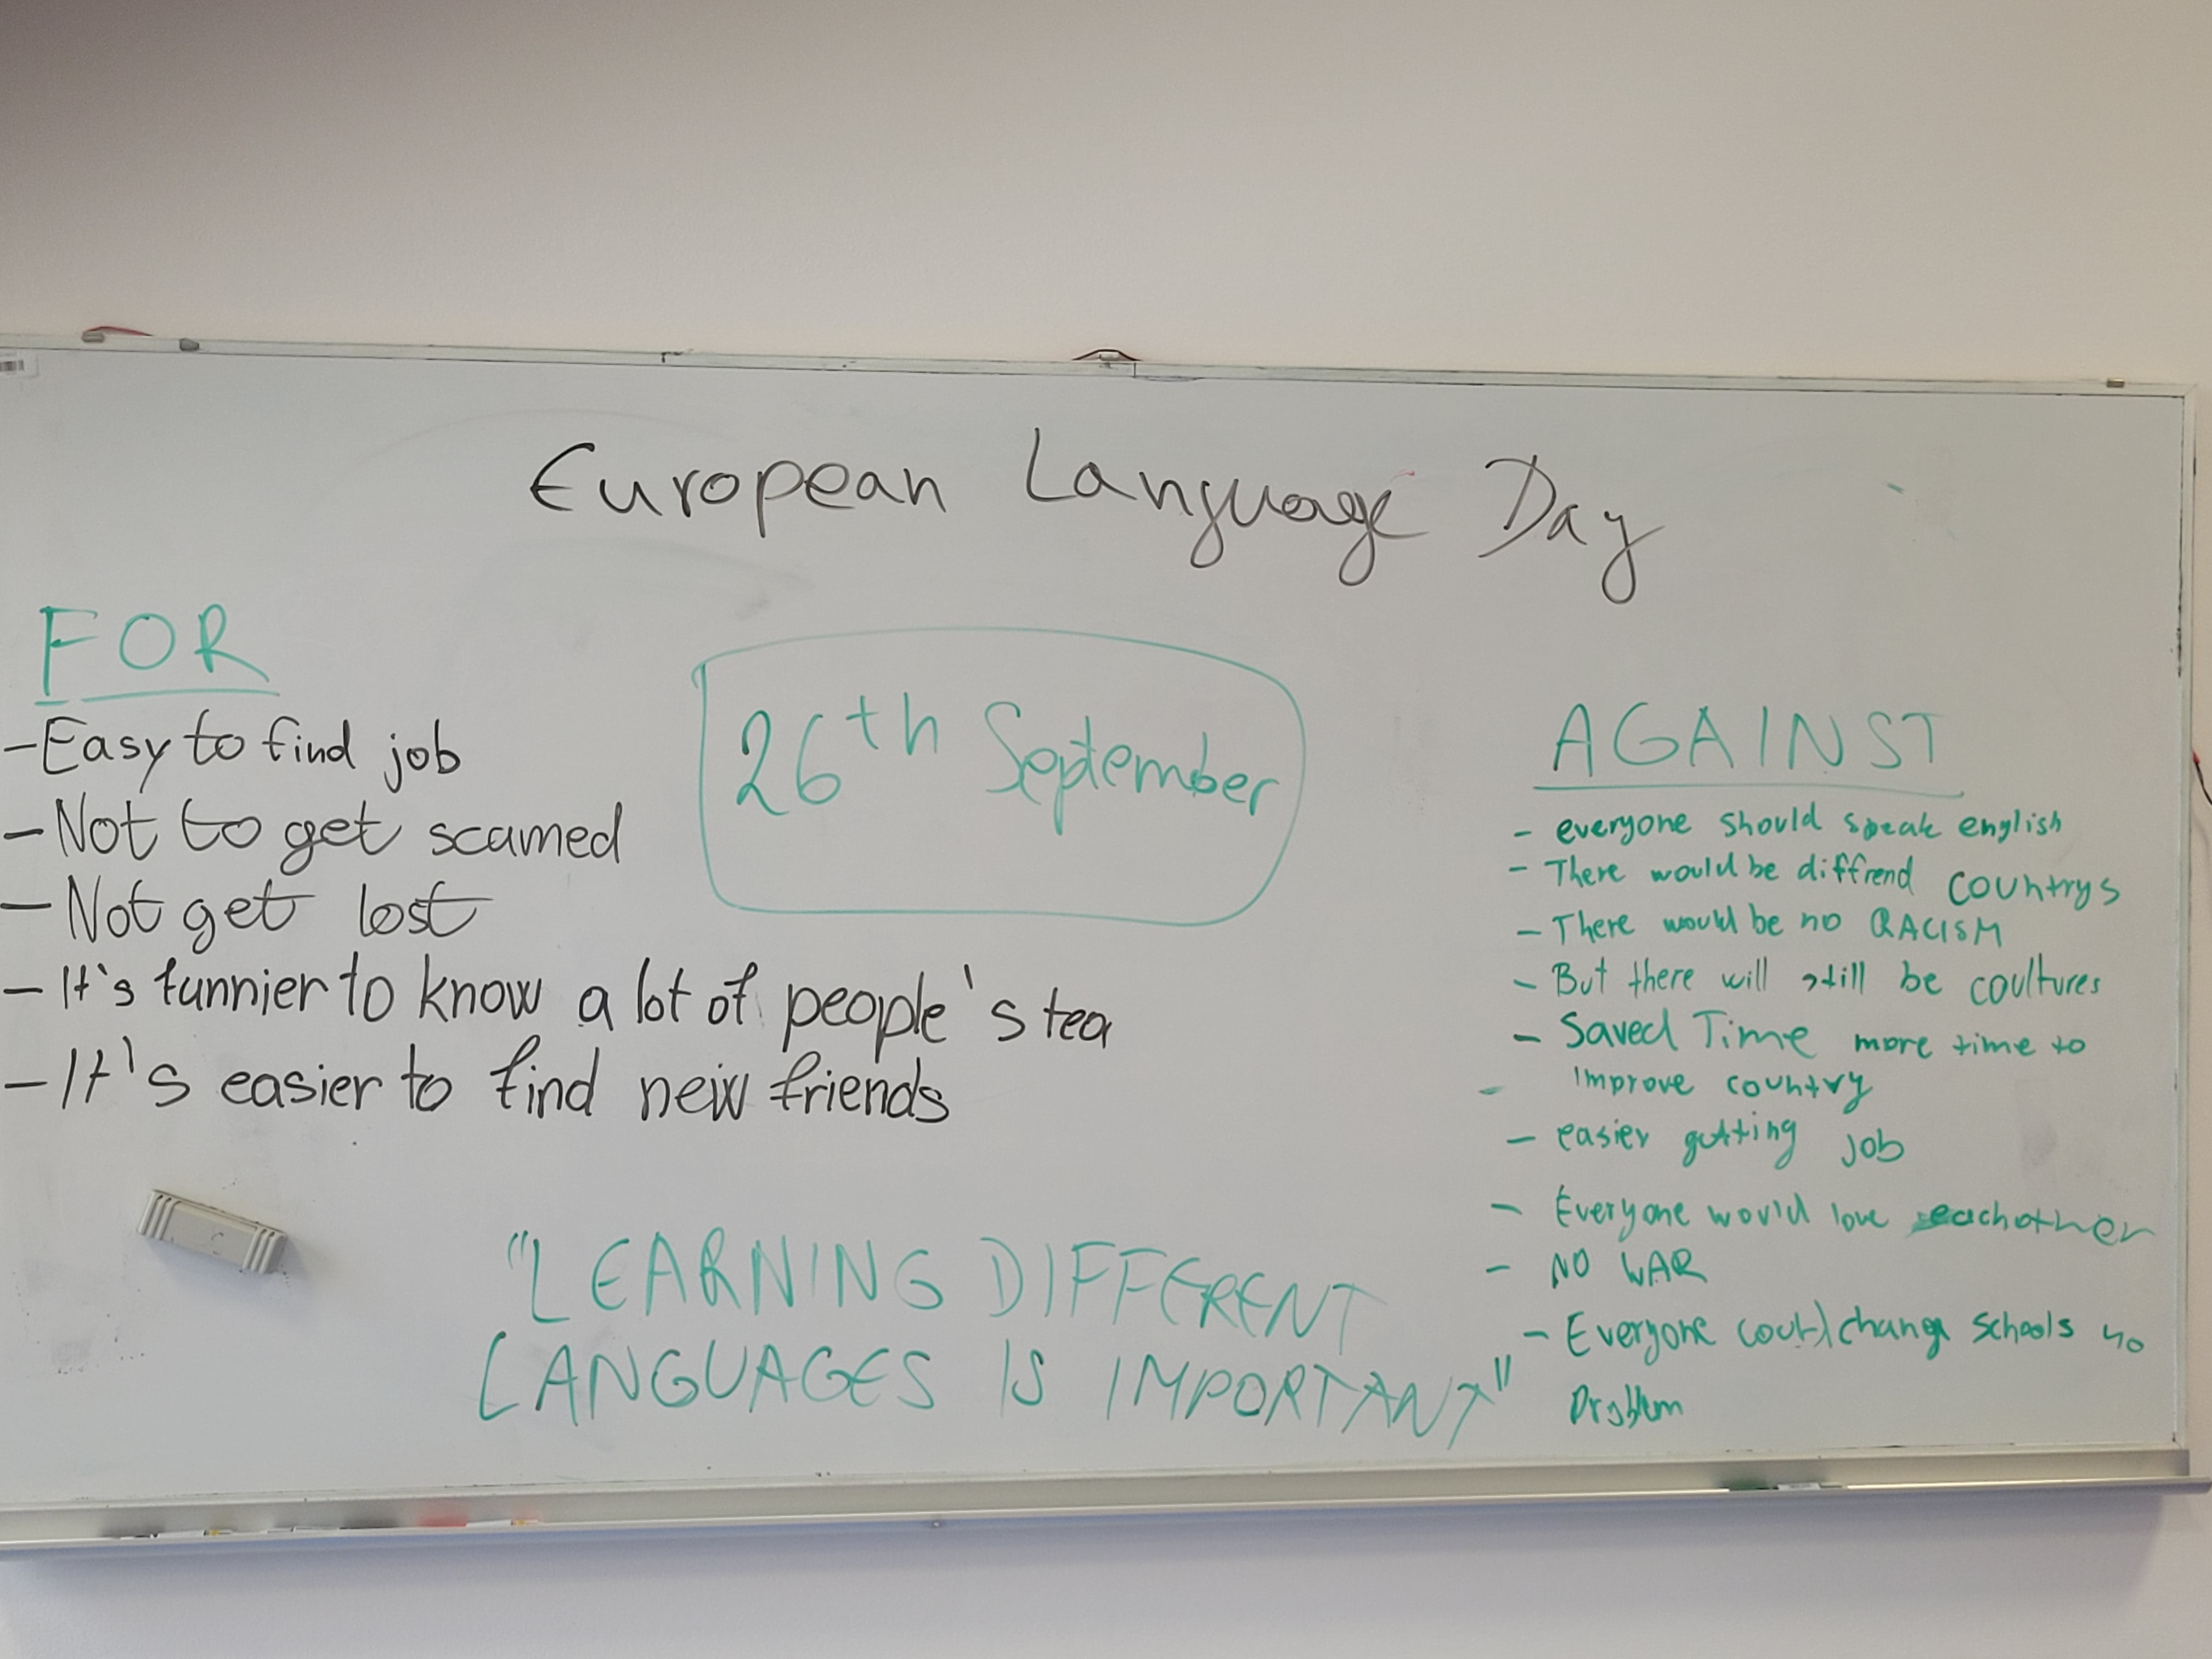 European Language Day
FOR
-Easy to find job
-Not to get scamed
-Not get lost
-It's funnier to know a lot of people's tea
-It's easier to find new friends
26th September
AGAINST
- everyone should speak english
- There would be diffrend countrys
- There would be no RACISM
- But there will still be coultures
- Saved Time more time to
- improve country
- easier getting job
- Everyone would love eachother
- NO WAR
- Everyone could change schools no
problem
"LEARNING DIFFERENT
LANGUAGES IS IMPORTANT"